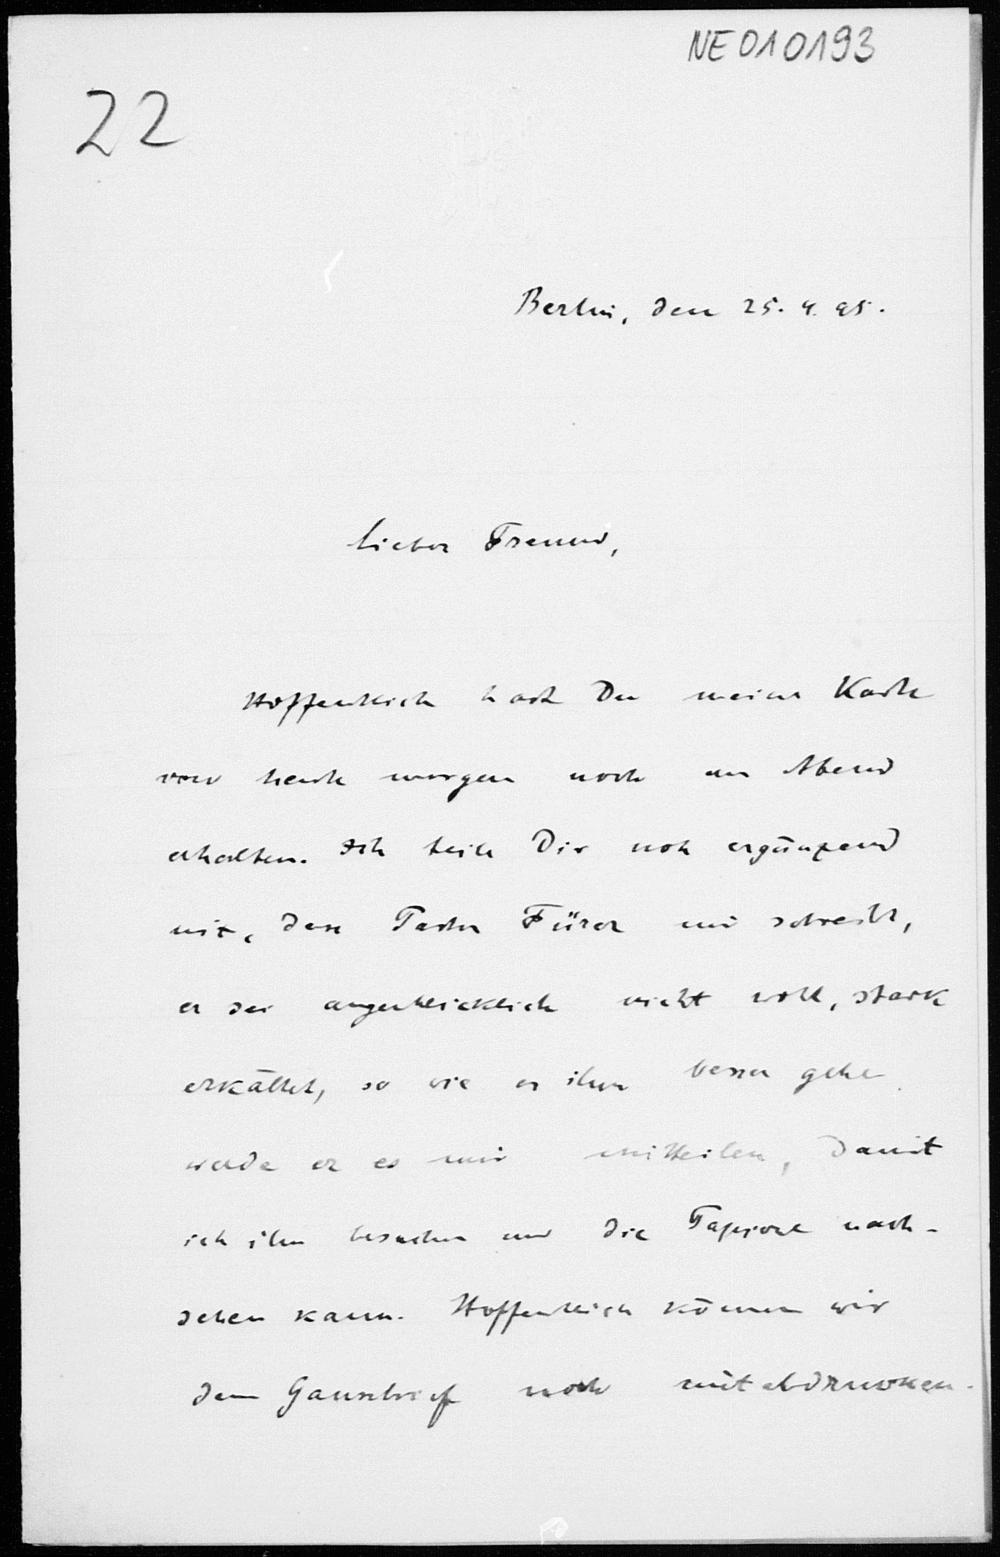 NE010193
22
Berlin, den 25. 4. 95.
Lieber Freund,
Hoffentlich hast Du meine Karte
von heute morgen noch am Abend
erhalten. Ich teile Dir noch ergänzend
mit, dass Pastor Fürer mir schreibt,
er sei augenblicklich nicht wohl, stark
erkältet, so wie es ihm besser gehe
werde er es mir mitteilen, damit
ich ihn besuchen und die Papiere nach-
sehen kann. Hoffentlich können wir
den Gaussbrief noch mit abdrucken.